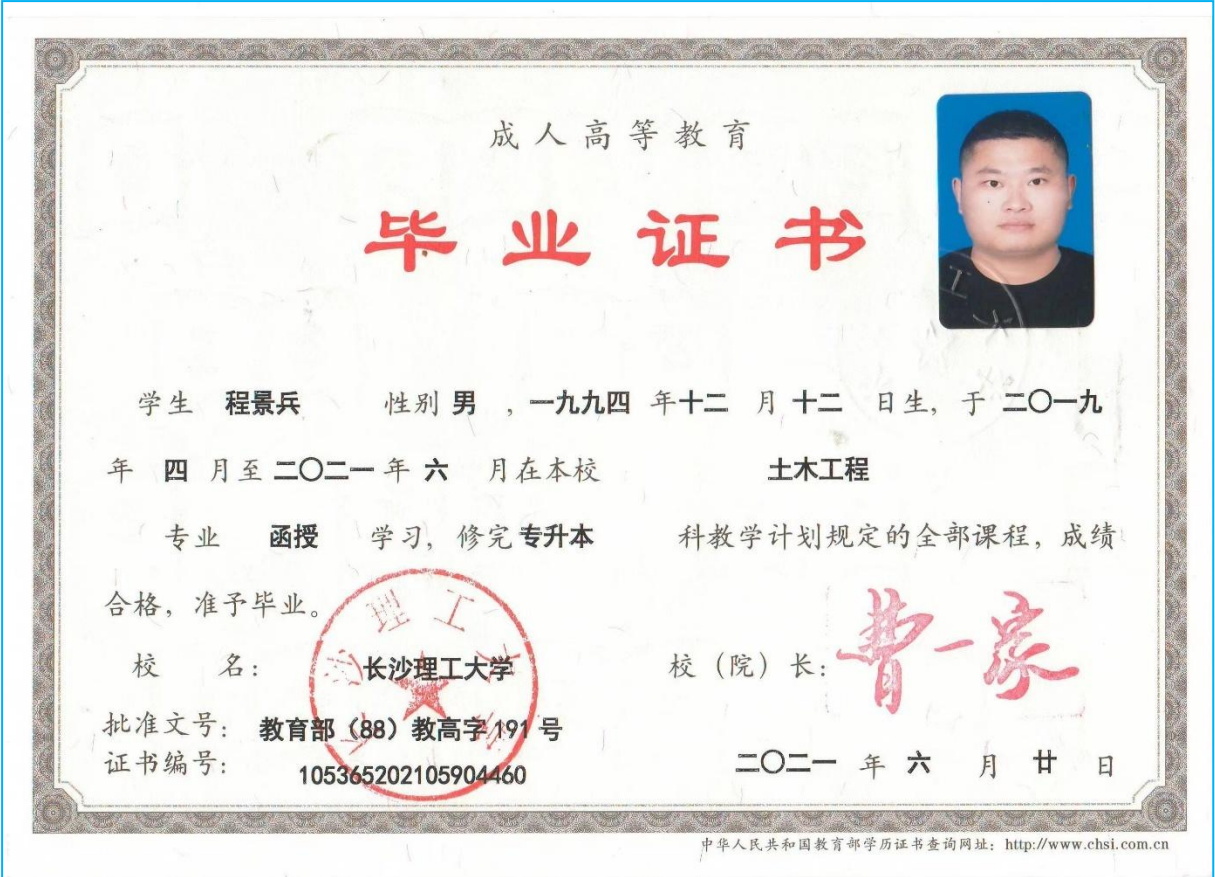 成人高等教育
毕业证书
学生 程景兵 性别 男 , 一九九四 年 十二 月 十二 日生, 于 二〇一九
年 四 月至 二〇二一 年 六 月在本校 土木工程
专业 函授 学习, 修完 专升本 科教学计划规定的全部课程, 成绩
合格, 准予毕业。
校 名: 长沙理工大学 校(院)长: 曹一家
批准文号: 教育部(88)教高字191号
证书编号: 105365202105904460 二〇二一 年 六 月 廿 日
长沙理工大学
中华人民共和国教育部学历证书查询网址: http://www.chsi.com.cn